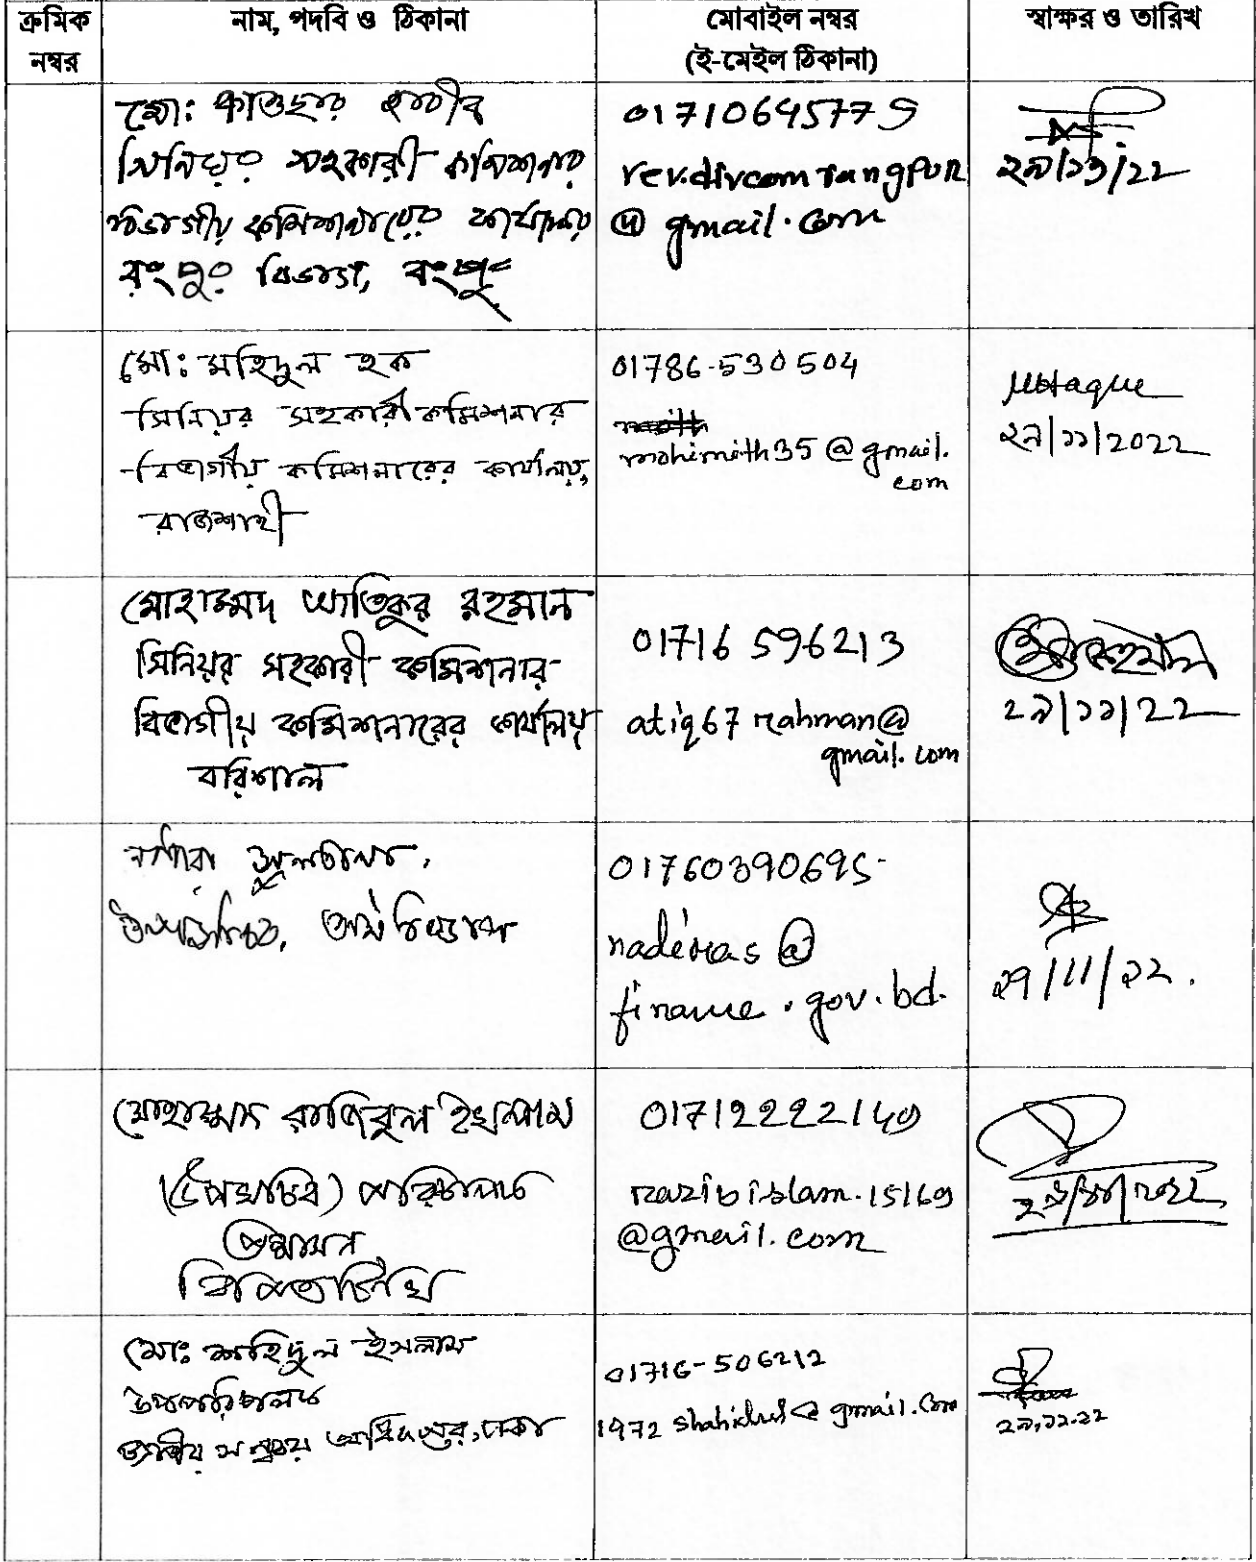 ক্রমিক নম্বর
নাম, পদবি ও ঠিকানা
মোবাইল নম্বর
(ই-মেইল ঠিকানা)
স্বাক্ষর ও তারিখ
মো: কাওছার হাবীব
সিনিয়র সহকারী কমিশনার
বিভাগীয় কমিশনারের কার্যালয়
রংপুর বিভাগ, রংপুর
01710645779
rev.divcomrangpur
@gmail.com
২৯/১১/২২
মো: মহিদুল হক
সিনিয়র সহকারী কমিশনার
বিভাগীয় কমিশনারের কার্যালয়,
রাজশাহী
01786-530504
mohimith35@gmail.
com
MHaque
২৯/১১/2022
মোহাম্মদ আতিকুর রহমান
সিনিয়র সহকারী কমিশনার
বিভাগীয় কমিশনারের কার্যালয়
বরিশাল
01716 596213
atiq67rahman@
gmail.com
২৯/১১/২২
সুলতানা,
উপসচিব, অর্থ বিভাগ
01760390695
nadiras@
finance.gov.bd.
২৯/11/২২.
মোহাম্মদ রাজিবুল ইসলাম
(উপসচিব) পরিচালক
প্রশাসন
01712222149
razibislam.15169
@gmail.com
২৯/১১/২০২২
মোঃ শহিদুল ইসলাম
উপপরিচালক
জাতীয় সঞ্চয় অধিদপ্তর, ঢাকা
01716-506212
1972shahidul@gmail.com
২৯.১১.২২